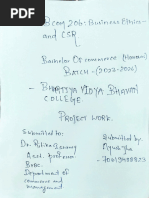 BCom 206: Business Ethics
and CSR
Bachelor Of commerce (Honours)
BATCH - (2022-2026)
- BHARTIYA VIDYA BHAVAN
COLLEGE.
PROJECT WORK.
Submitted to:
Submitted by:
Dr.
Asst. professor
BVBC.
Department of
commerce and
management